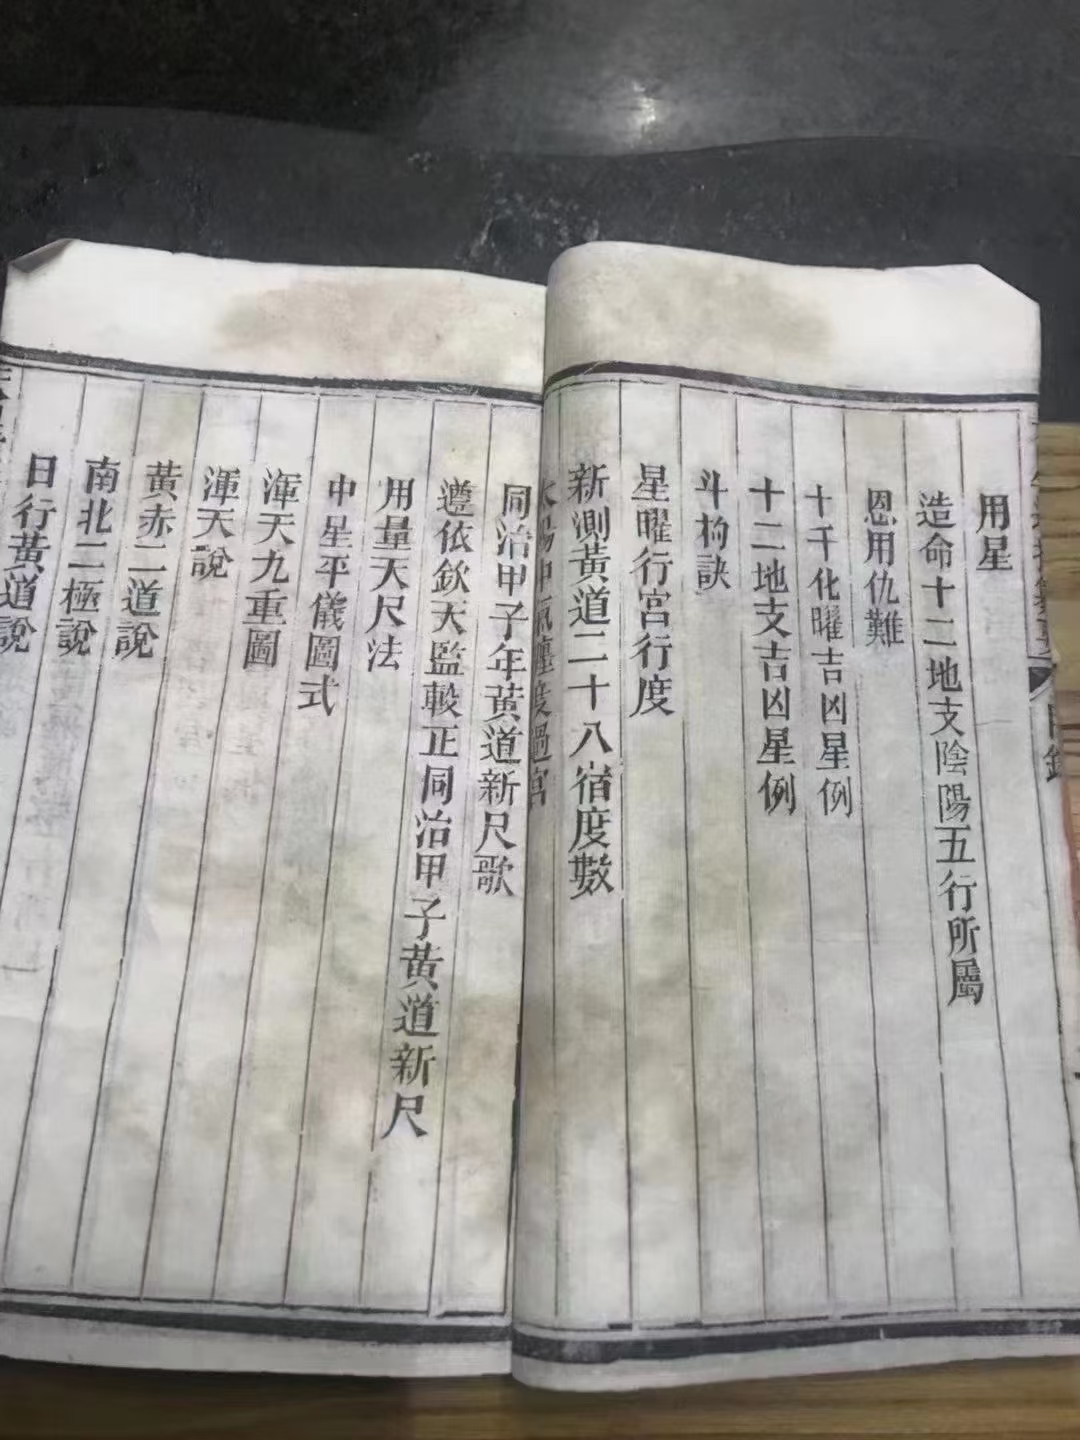 用星
造命十二地支陰陽五行所屬
恩用仇難
十干化曜吉凶星例
十二地支吉凶星例
斗柄訣
星曜行宮行度
新測黃道二十八宿度數
太陽中氣躔度過宮
同治甲子年黃道新尺歌
遵依欽天監較正同治甲子黃道新尺
用量天尺法
中星平儀圖式
渾天九重圖
渾天說
黃赤二道說
南北二極說
日行黃道說